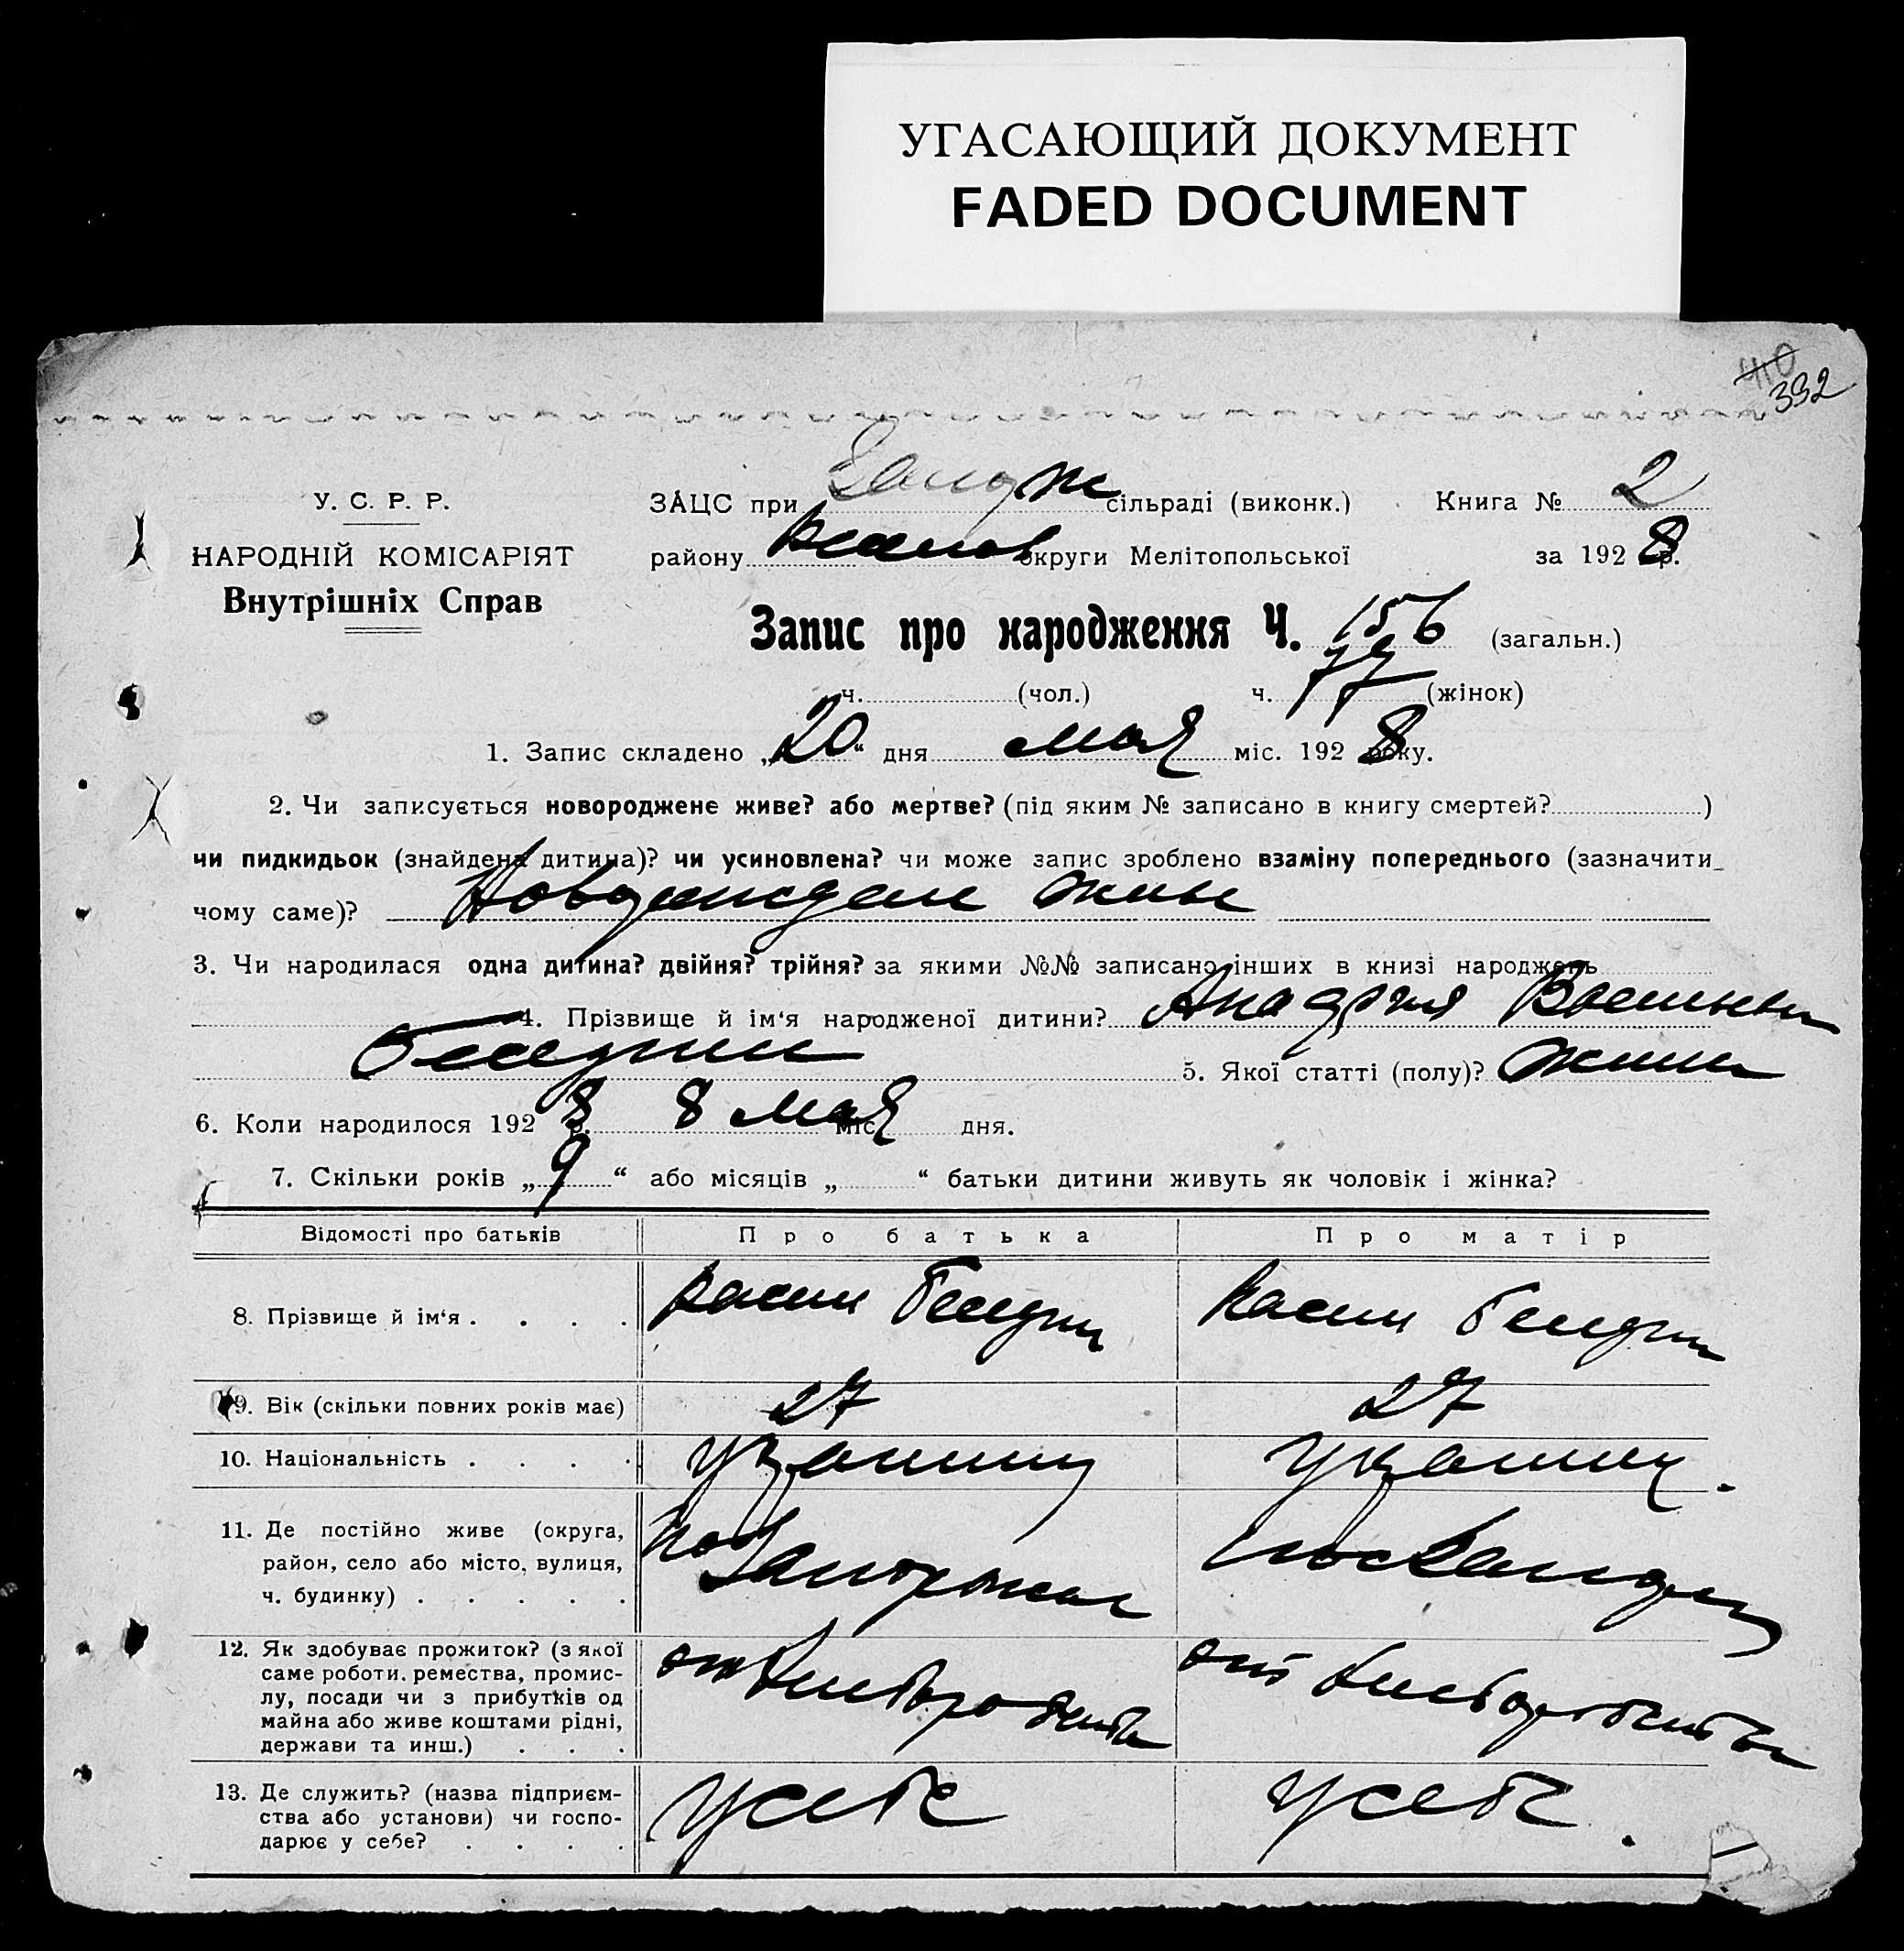 УГАСАЮЩИЙ ДОКУМЕНТ
FADED DOCUMENT
410
392
У. С. Р. Р.
НАРОДНІЙ КОМІСАРІЯТ
Внутрішніх Справ
ЗАЦС при сільраді (виконк.) Книга № 2
району округи Мелітопольської за 1928 р.
Запис про народження Ч. 156 (загальн.)
ч. (чол.) ч. 77 (жінок)
1. Запис складено „20“ дня мая міс. 1928 року.
2. Чи записується новороджене живе? або мертве? (під яким № записано в книгу смертей? )
чи пидкидьок (знайдена дитина)? чи усиновлена? чи може запис зроблено взаміну попереднього (зазначити
чому саме)?
3. Чи народилася одна дитина? двійня? трійня? за якими №№ записано інших в книзі народжень
4. Прізвище й ім‘я народженої дитини?
5. Якої статті (полу)?
6. Коли народилося 1928 р. 8 мая міс. дня.
7. Скільки років „9“ або місяців „ “ батьки дитини живуть як чоловік і жінка?
Відомості про батьків Про батька Про матір
8. Прізвище й ім‘я . . . .
9. Вік (скільки повних років має) 27 27
10. Національність . . . .
11. Де постійно живе (округа,
район, село або місто, вулиця,
ч. будинку) . . . . .
12. Як здобуває прожиток? (з якої
саме роботи, ремества, промис-
лу, посади чи з прибутків од
майна або живе коштами рідні,
держави та инш.) . . .
13. Де служить? (назва підприєм-
ства або установи) чи госпо-
дарює у себе? . . . .
у себе у себе